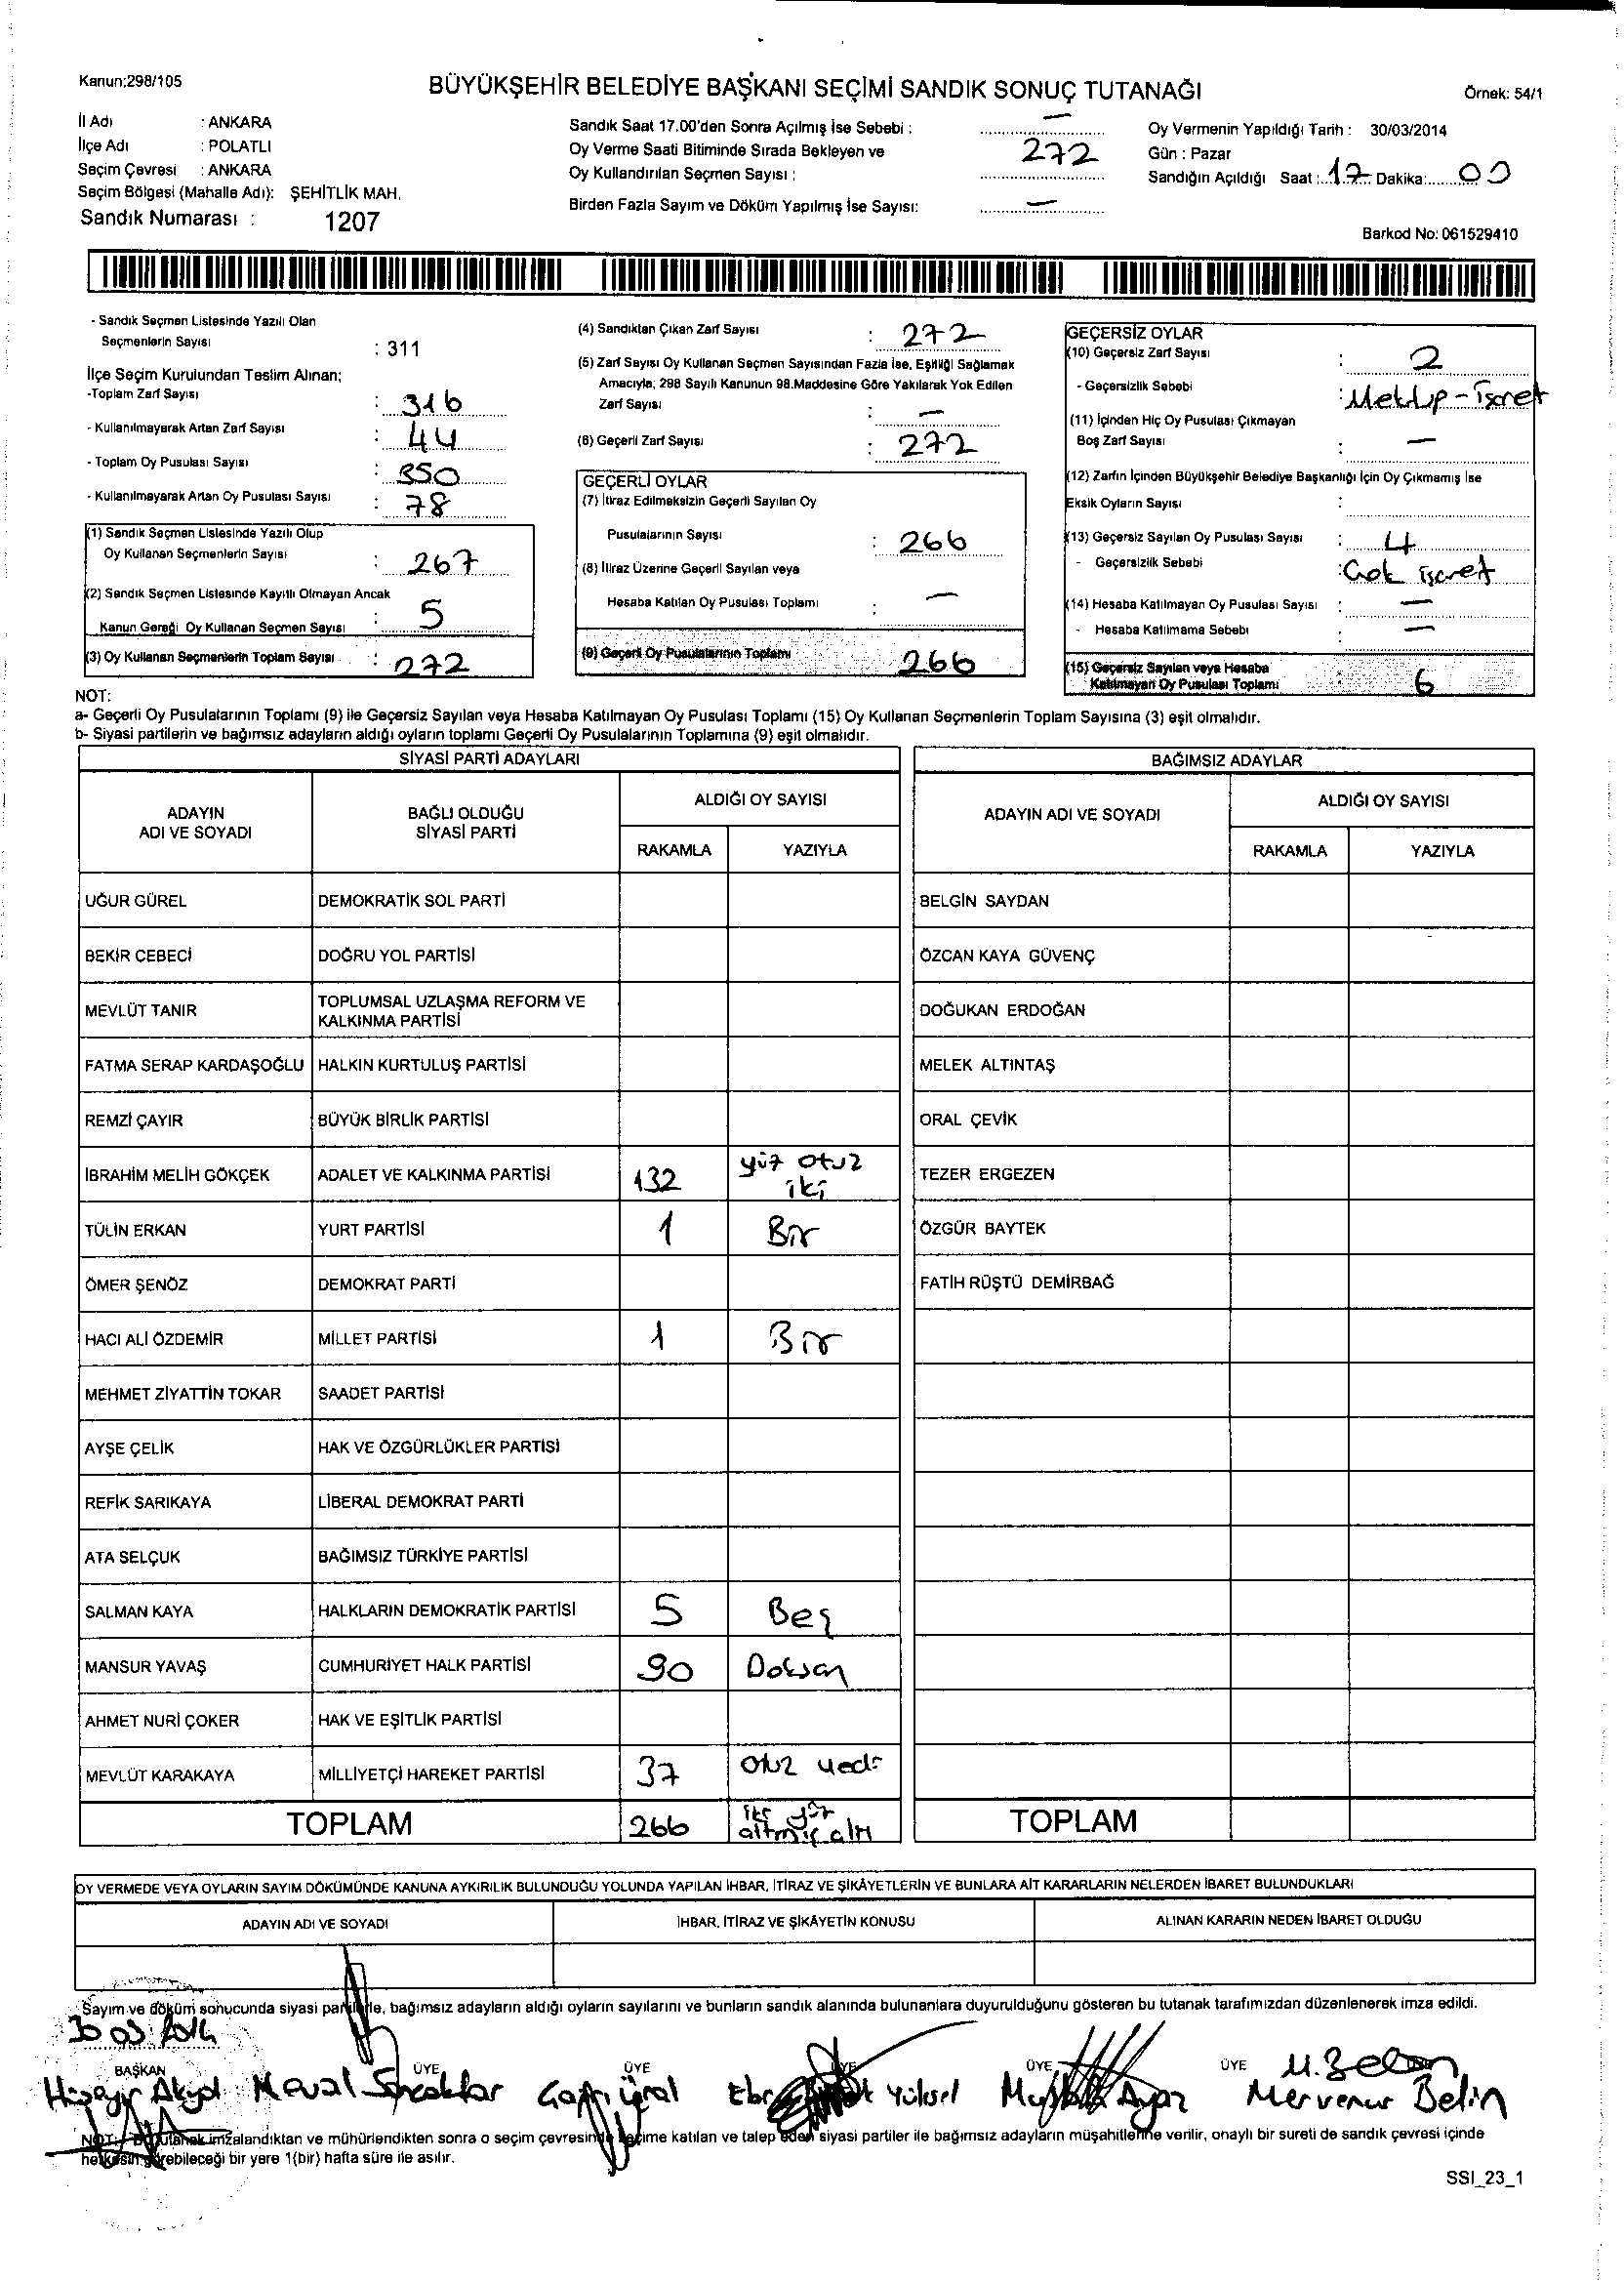 Kanun;298/105
BÜYÜKŞEHİR BELEDİYE BAŞKANI SEÇİMİ SANDIK SONUÇ TUTANAĞI
Örnek: 54/1
İl Adı : ANKARA
İlçe Adı : POLATLI
Seçim Çevresi : ANKARA
Seçim Bölgesi (Mahalle Adı): ŞEHİTLİK MAH.
Sandık Numarası : 1207
Sandık Saat 17.00'den Sonra Açılmış İse Sebebi : —
Oy Verme Saati Bitiminde Sırada Bekleyen ve
Oy Kullandırılan Seçmen Sayısı : 272
Birden Fazla Sayım ve Döküm Yapılmış İse Sayısı: —
Oy Vermenin Yapıldığı Tarih : 30/03/2014
Gün : Pazar
Sandığın Açıldığı Saat : 17 Dakika: 00
Barkod No: 061529410
- Sandık Seçmen Listesinde Yazılı Olan
Seçmenlerin Sayısı : 311
İlçe Seçim Kurulundan Teslim Alınan;
-Toplam Zarf Sayısı : 316
- Kullanılmayarak Artan Zarf Sayısı : 44
- Toplam Oy Pusulası Sayısı : 350
- Kullanılmayarak Artan Oy Pusulası Sayısı : 78
(1) Sandık Seçmen Listesinde Yazılı Olup
Oy Kullanan Seçmenlerin Sayısı : 267
(2) Sandık Seçmen Listesinde Kayıtlı Olmayan Ancak
Kanun Gereği Oy Kullanan Seçmen Sayısı : 5
(3) Oy Kullanan Seçmenlerin Toplam Sayısı : 272
(4) Sandıktan Çıkan Zarf Sayısı : 272
(5) Zarf Sayısı Oy Kullanan Seçmen Sayısından Fazla İse, Eşitliği Sağlamak
Amacıyla; 298 Sayılı Kanunun 98.Maddesine Göre Yakılarak Yok Edilen
Zarf Sayısı : —
(6) Geçerli Zarf Sayısı : 272
GEÇERLİ OYLAR
(7) İtiraz Edilmeksizin Geçerli Sayılan Oy
Pusulalarının Sayısı : 266
(8) İtiraz Üzerine Geçerli Sayılan veya
Hesaba Katılan Oy Pusulası Toplamı : —
(9) Geçerli Oy Pusulalarının Toplamı 266
GEÇERSİZ OYLAR
(10) Geçersiz Zarf Sayısı : 2
- Geçersizlik Sebebi : Mektup - İşaret
(11) İçinden Hiç Oy Pusulası Çıkmayan
Boş Zarf Sayısı : —
(12) Zarfın İçinden Büyükşehir Belediye Başkanlığı İçin Oy Çıkmamış İse
Eksik Oyların Sayısı :
(13) Geçersiz Sayılan Oy Pusulası Sayısı : 4
- Geçersizlik Sebebi : Çok işaret
(14) Hesaba Katılmayan Oy Pusulası Sayısı : —
- Hesaba Katılmama Sebebi : —
(15) Geçersiz Sayılan veya Hesaba
Katılmayan Oy Pusulası Toplamı 6
NOT:
a- Geçerli Oy Pusulalarının Toplamı (9) ile Geçersiz Sayılan veya Hesaba Katılmayan Oy Pusulası Toplamı (15) Oy Kullanan Seçmenlerin Toplam Sayısına (3) eşit olmalıdır.
b- Siyasi partilerin ve bağımsız adayların aldığı oyların toplamı Geçerli Oy Pusulalarının Toplamına (9) eşit olmalıdır.
SİYASİ PARTİ ADAYLARI
ADAYIN
ADI VE SOYADI
BAĞLI OLDUĞU
SİYASİ PARTİ
ALDIĞI OY SAYISI
RAKAMLA YAZIYLA
UĞUR GÜREL DEMOKRATİK SOL PARTİ
BEKİR CEBECİ DOĞRU YOL PARTİSİ
MEVLÜT TANIR TOPLUMSAL UZLAŞMA REFORM VE
KALKINMA PARTİSİ
FATMA SERAP KARDAŞOĞLU HALKIN KURTULUŞ PARTİSİ
REMZİ ÇAYIR BÜYÜK BİRLİK PARTİSİ
İBRAHİM MELİH GÖKÇEK ADALET VE KALKINMA PARTİSİ 132 yüz otuz
iki
TÜLİN ERKAN YURT PARTİSİ 1 Bir
ÖMER ŞENÖZ DEMOKRAT PARTİ
HACI ALİ ÖZDEMİR MİLLET PARTİSİ 1 Bir
MEHMET ZİYATTİN TOKAR SAADET PARTİSİ
AYŞE ÇELİK HAK VE ÖZGÜRLÜKLER PARTİSİ
REFİK SARIKAYA LİBERAL DEMOKRAT PARTİ
ATA SELÇUK BAĞIMSIZ TÜRKİYE PARTİSİ
SALMAN KAYA HALKLARIN DEMOKRATİK PARTİSİ 5 Beş
MANSUR YAVAŞ CUMHURİYET HALK PARTİSİ 90 Doksan
AHMET NURİ ÇOKER HAK VE EŞİTLİK PARTİSİ
MEVLÜT KARAKAYA MİLLİYETÇİ HAREKET PARTİSİ 37 Otuz yedi
TOPLAM 266 iki yüz
altmış altı
BAĞIMSIZ ADAYLAR
ADAYIN ADI VE SOYADI
ALDIĞI OY SAYISI
RAKAMLA YAZIYLA
BELGİN SAYDAN
ÖZCAN KAYA GÜVENÇ
DOĞUKAN ERDOĞAN
MELEK ALTINTAŞ
ORAL ÇEVİK
TEZER ERGEZEN
ÖZGÜR BAYTEK
FATİH RÜŞTÜ DEMİRBAĞ
TOPLAM
OY VERMEDE VEYA OYLARIN SAYIM DÖKÜMÜNDE KANUNA AYKIRILIK BULUNDUĞU YOLUNDA YAPILAN İHBAR, İTİRAZ VE ŞİKÂYETLERİN VE BUNLARA AİT KARARLARIN NELERDEN İBARET BULUNDUKLARI
ADAYIN ADI VE SOYADI İHBAR, İTİRAZ VE ŞİKÂYETİN KONUSU ALINAN KARARIN NEDEN İBARET OLDUĞU
Sayım ve döküm sonucunda siyasi partilerle, bağımsız adayların aldığı oyların sayılarını ve bunların sandık alanında bulunanlara duyurulduğunu gösteren bu tutanak tarafımızdan düzenlenerek imza edildi.
30 03 2014
BAŞKAN ÜYE ÜYE ÜYE ÜYE ÜYE
M. Belin
Hüseyin Akyol Yüksel Mustafa Ayaz Mervenur Belin
NOT: Bu tutanak imzalandıktan ve mühürlendikten sonra o seçim çevresinde seçime katılan ve talep eden siyasi partiler ile bağımsız adayların müşahitlerine verilir, onaylı bir sureti de sandık çevresi içinde
herkesin görebileceği bir yere 1(bir) hafta süre ile asılır.
SSI_23_1